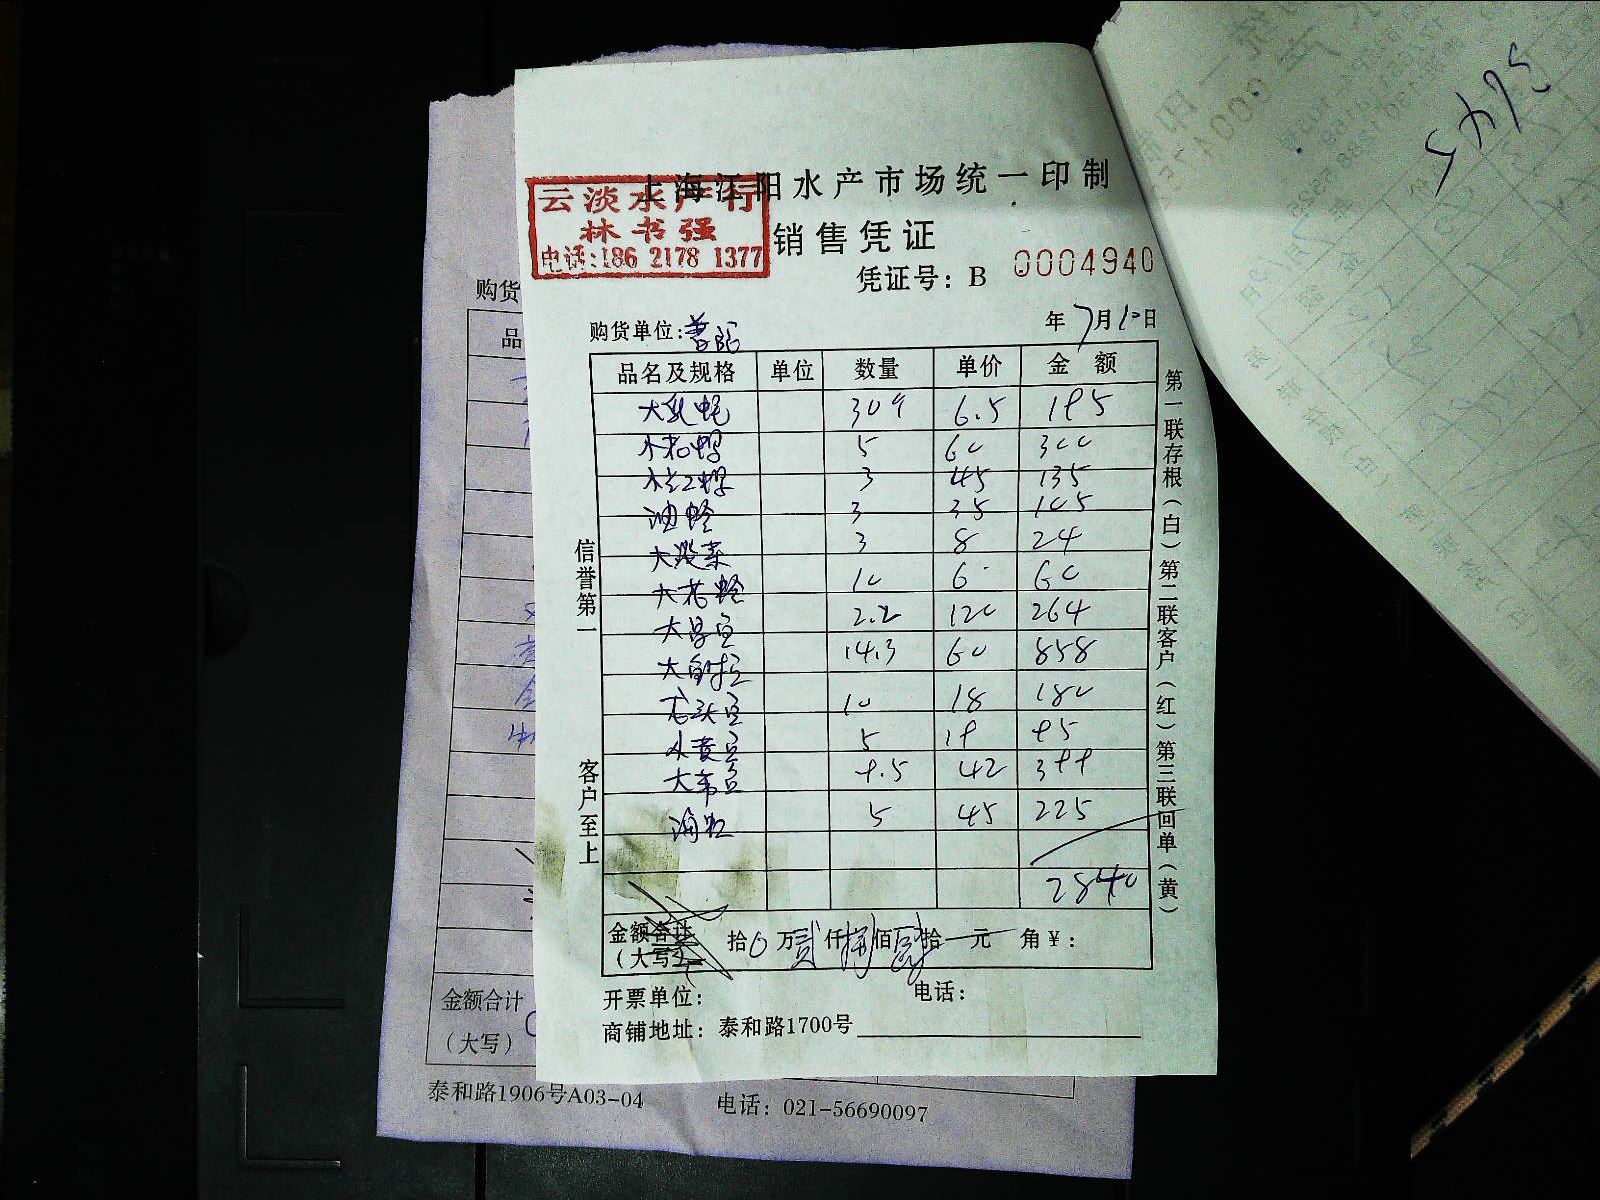 上海江阳水产市场统一印制
云淡水产行
林书强
电话:186 2178 1377
销售凭证
凭证号：B 0004940
购货单位:
年 7月10日
品名及规格 单位 数量 单价 金额
309 6.5 195
5 60 300
3 45 135
油蛤 3 35 105
大淡菜 3 8 24
大花蛤 10 6 60
2.2 120 264
14.3 60 858
龙头鱼 10 18 180
小黄鱼 5 19 95
9.5 42 399
海虹 5 45 225
2840
金额合计
（大写） 拾0万贰仟捌佰肆拾一元 角¥：
开票单位： 电话：
商铺地址：泰和路1700号
信誉第一
客户至上
第一联存根（白）第二联客户（红）第三联回单（黄）
购货
品
金额合计
（大写）
泰和路1906号A03-04 电话：021-56690097